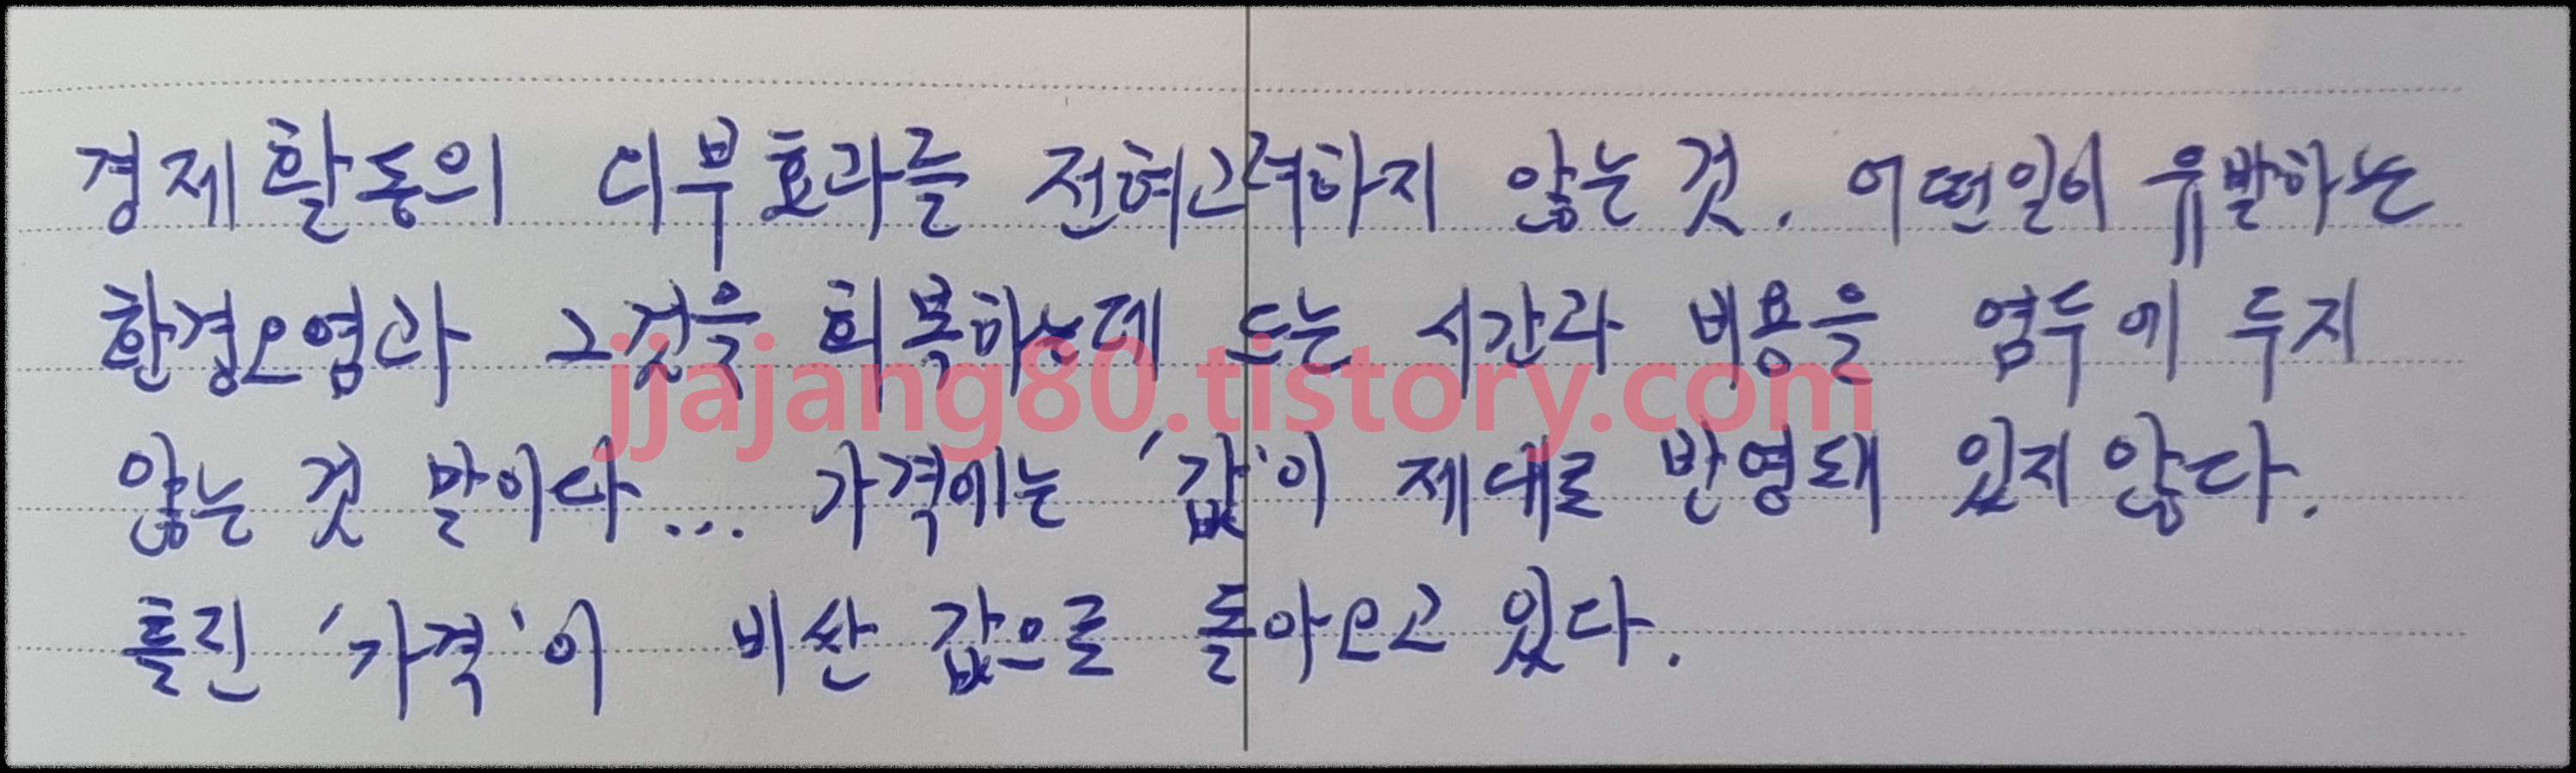 경제활동의 디부효과를 전혀고려하지 않는 것. 어떤일이 유발하는
환경오염과 그것을 회복하는데 드는 시간과 비용을 염두에 두지
jjajang80.tistory.com
않는 것 말이다... 가격에는 '값'이 제대로 반영돼 있지 않다.
틀린 '가격'이 비싼 값으로 돌아오고 있다.